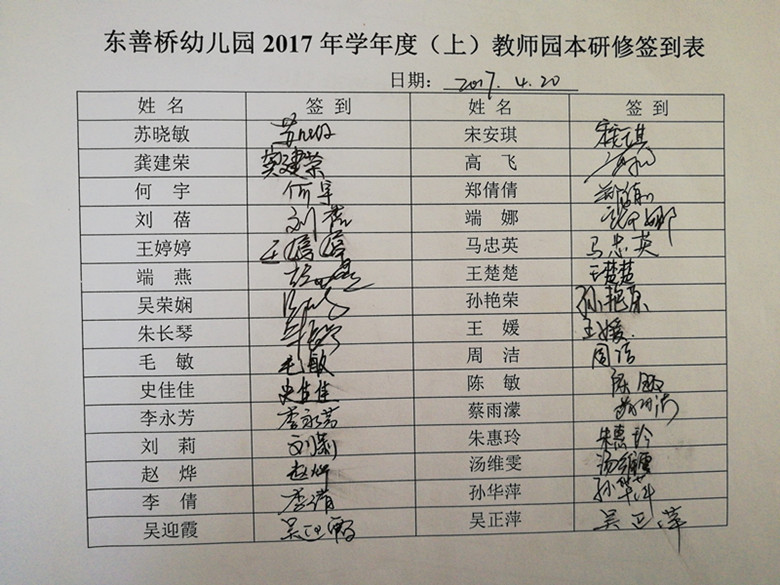 东善桥幼儿园 2017 年学年度（上）教师园本研修签到表
日期： 2017. 4. 20
姓 名 签 到 姓 名 签 到
苏晓敏 宋安琪
龚建荣 高 飞
何 宇 何宇 郑倩倩
刘 蓓 刘蓓 端 娜
王婷婷 王婷婷 马忠英 马忠英
端 燕 王楚楚 王楚楚
吴荣娴 孙艳荣 孙艳荣
朱长琴 王 媛 王媛
毛 敏 毛敏 周 洁 周洁
史佳佳 史佳佳 陈 敏 陈敏
李永芳 李永芳 蔡雨濛
刘 莉 刘莉 朱惠玲 朱惠玲
赵 烨 赵烨 汤维雯 汤维雯
李 倩 李倩 孙华萍 孙华萍
吴迎霞 吴迎霞 吴正萍 吴正萍